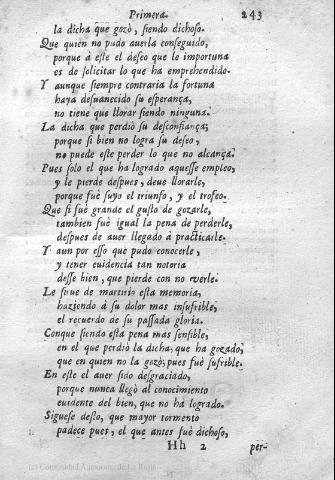 Primera. 243
la dicha que gozò, siendo dichoso.
Que quien no pudo auerla conseguido,
porque à este el deseo que le importuna
es de solicitar lo que ha emprehendido.
Y aunque siempre contraria la fortuna
haya desuanecido su esperança,
no tiene que llorar siendo ninguna.
La dicha que perdiò su desconfiança;
porque si bien no logra su deseo,
no puede este perder lo que no alcança.
Pues solo el que ha logrado aquesse empleo,
y le pierde despues, deue llorarle,
porque fuè suyo el triunfo, y el trofeo.
Que si fuè grande el gusto de gozarle,
tambien fuè igual la pena de perderle,
despues de auer llegado à practicarle.
Y aun por esso que pudo conocerle,
y tener euidencia tan notoria
desse bien, que pierde con no verle.
Le sirue de martirio esta memoria,
haziendo à su dolor mas insufrible,
el recuerdo de su passada gloria.
Conque siendo esta pena mas sensible,
en el que perdiò la dicha, que ha gozado,
que en quien no la gozò; pues fuè sufrible.
En este el auer sido desgraciado,
porque nunca llegò al conocimiento
euidente del bien, que no ha logrado.
Siguese desto, que mayor tormento
padece pues, el que antes fuè dichoso,
Hh 2 per-
(c) Comunidad Autónoma de La Rioja